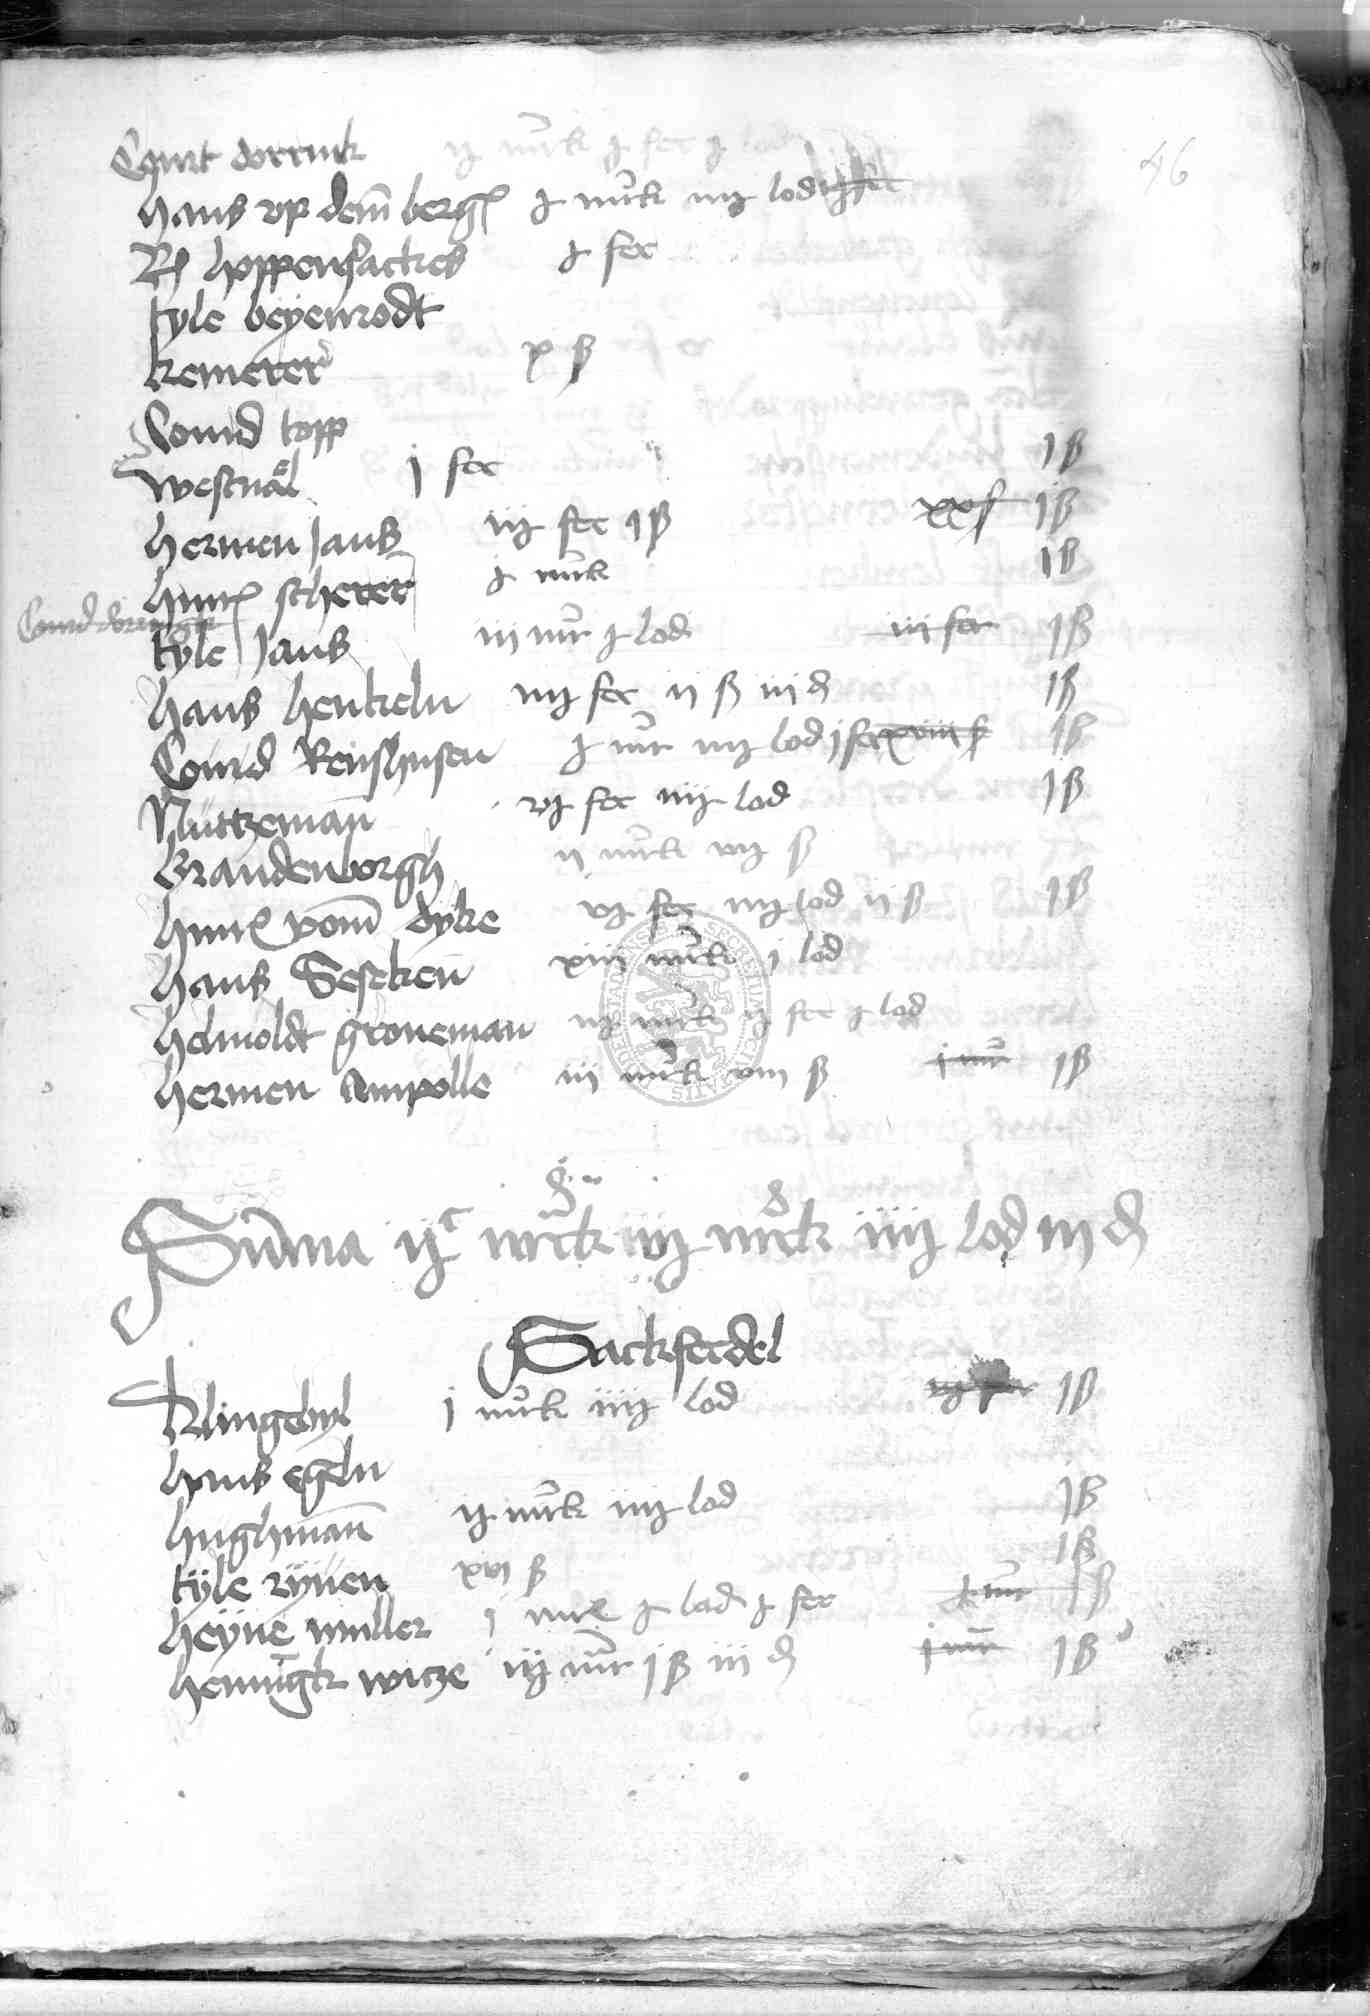 46
Curt dorrink ij mrk j fer j lod
hans vp dem berge j mrk iiij lod
hoppensackes j fer
tyle beyenrodt
kemerer x ß
Cond topp
westual j fer 1 ß
hermen Jans iij fer 1 ß xxß 1 ß
hinr scherer j mrk 1 ß
Cond
tyle Jans iii mr j lod iii fer 1 ß
hans henkeln iiij fer ij ß iii d 1 ß
Cord Reinshusen j mr iiij lod j fer xviii ß 1 ß
Nutzeman vj fer iiij lod 1 ß
Brandenborgh ii mrk vij ß
hinr vom dyke vj fer iiij lod ii ß 1 ß
hans Seseken xiij mrk j lod
helmoldt groneman iij mrk ij fer j lod
hermen Ampolle iii mrk viii ß j mr 1 ß
Summa ijc mrck vij mrck iiij lod iij d
Sackferdel
Klingebyl j mrk iiij lod 1 ß
hans egeln
hughman ij mrk iiij lod 1 ß
tyle ryuen xvi ß 1 ß
heyne muller j mrk j lod j fer j mr 1 ß
hennigk witze iij mr j ß iii d j mr 1 ß